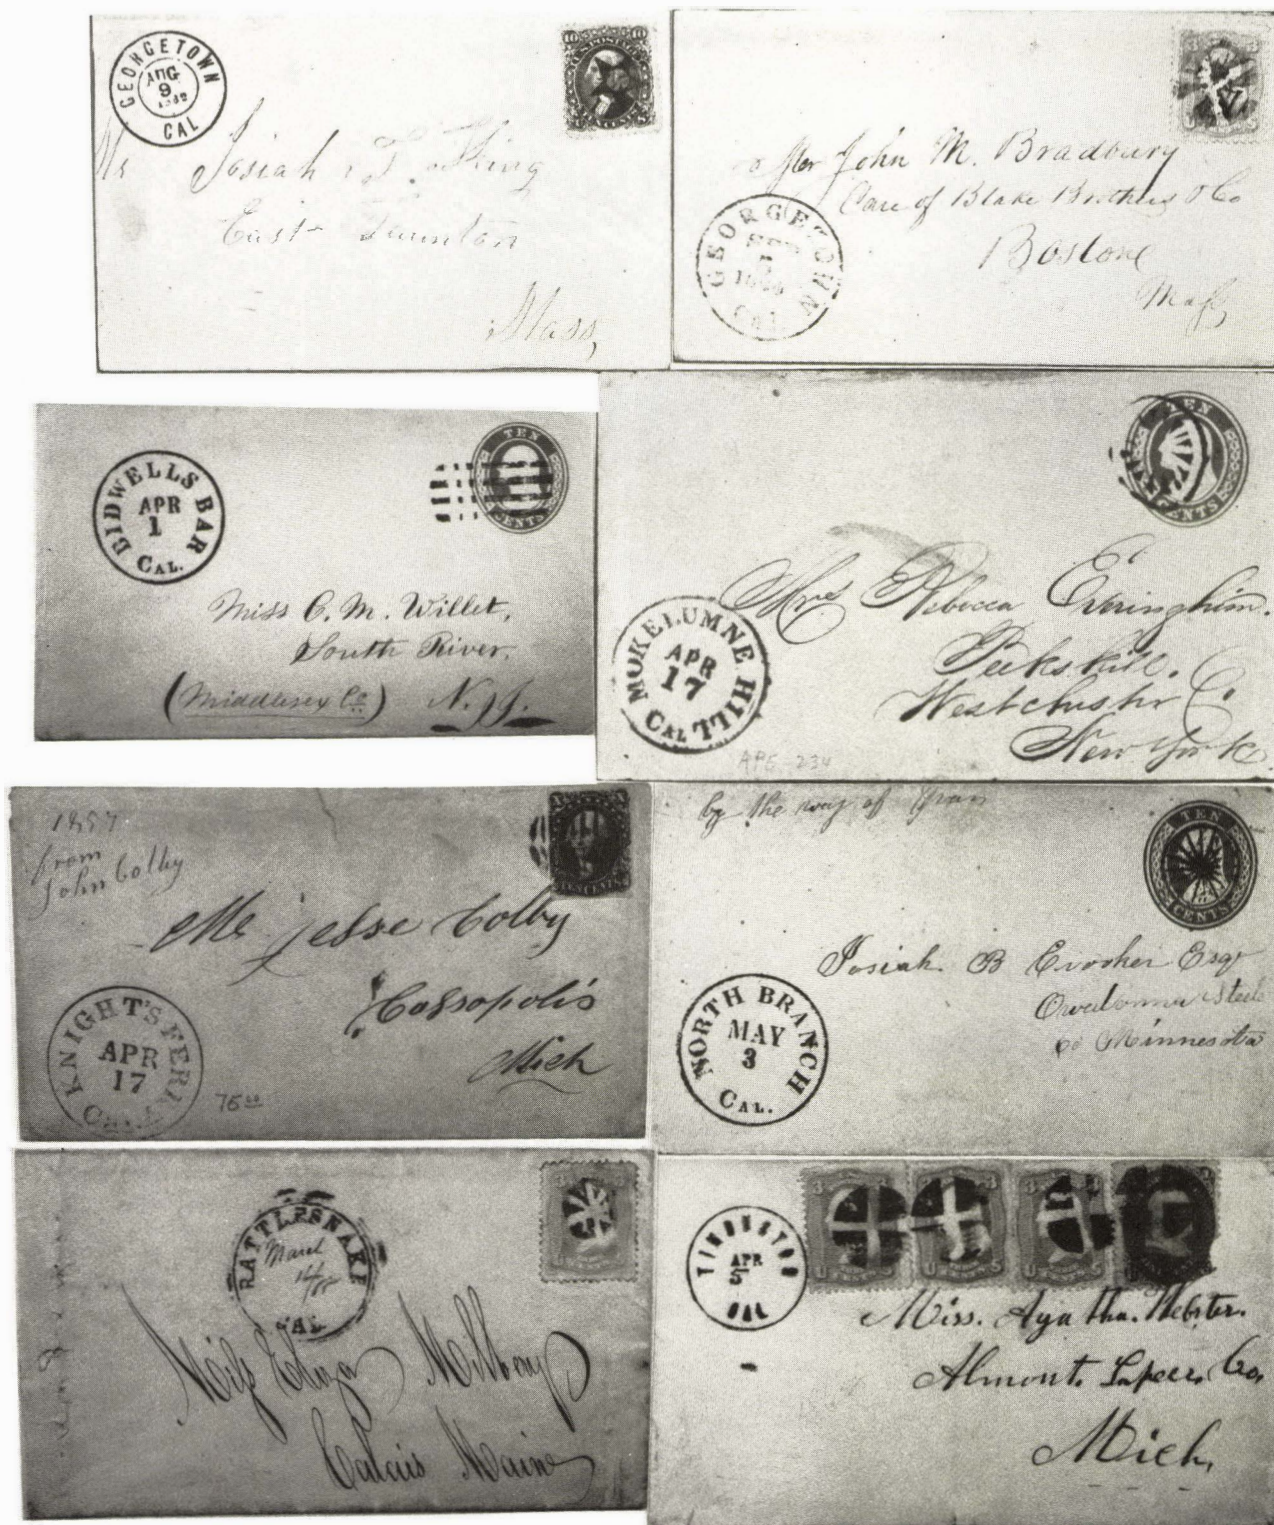 GEORGETOWN
AUG
9
CAL
10 10
U.S. POSTAGE
Mr Josiah King
East Taunton
Mass,
Mr John M. Bradbury
Care of Blake Brothers & Co
Bostone
Mass,
GEORGETOWN
Cal
BIDWELLS BAR
APR
1
CAL.
TEN
CENTS
Miss C. M. Willet,
South River,
(Middlesex Co) N. J.
TEN
CENTS
MOKELUMNE HILL
APR
17
CAL
Mrs Rebecca Everinghim.
Peekskill.
Westchester Co.
New York
APE-234
1857
from
John Colby
TEN CENTS
Mr Jesse Colby
Cassopolis
Mich
KNIGHT'S FERRY
APR
17
CAL.
75 00
by the way of
TEN
CENTS
Josiah B Crooker Esqr
Owatonna Steele
co Minnesota
NORTH BRANCH
MAY
3
CAL.
RATTLESNAKE
March
14/
CAL
3
Miss Eliza
Calais Maine
APR
5
CAL
3 3
U S
Miss. Agatha. Webster.
Almont. Lapeer, Co,
Mich,